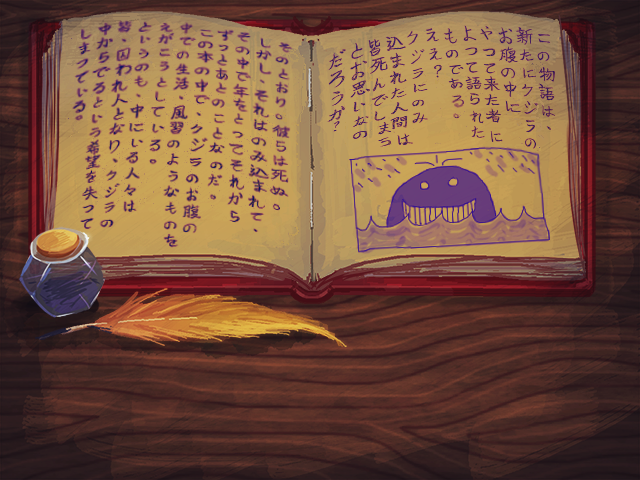 この物語は、
新たにクジラの
お腹の中に
やって来た者に
よって語られた
ものである。
ええ?
クジラにのみ
込まれた人間は
皆死んでしまう
とお思いなの
だろうか?
そのとおり。彼らは死ぬ。
しかし、それはのみ込まれて、
その中で年をとってそれから
ずっとあとのことなのだ。
この本の中で、クジラのお腹の
中での生活、風習のようなものを
えがこうとしている。
というのも、中にいる人々は
皆、囚われ人となり、クジラの
中からでるという希望を失って
しまっている。